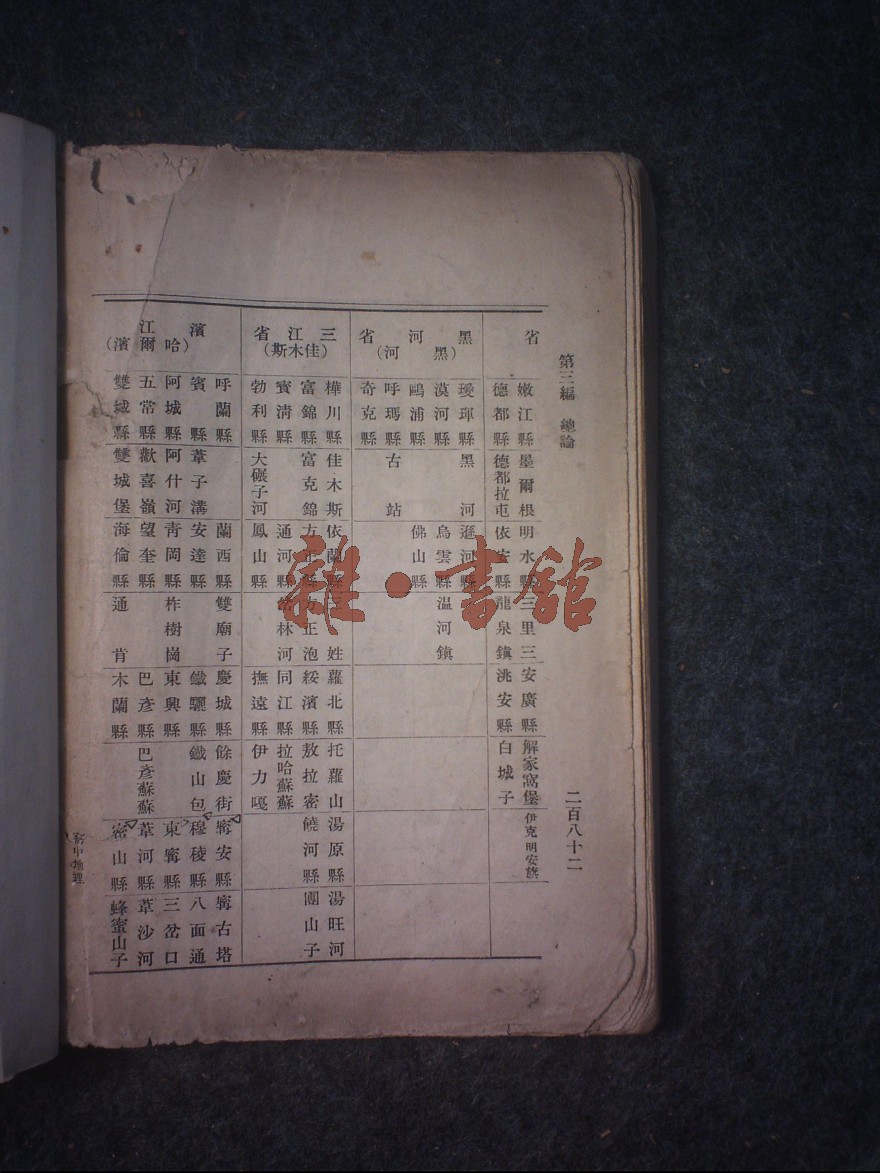 第三編 總論
二百八十二
省
嫩江縣 墨爾根 明水縣 三里三 安廣縣 解家窩堡 伊克明安旗
德都縣 德都拉屯 依安縣 龍泉鎮 洮安縣 白城子
黑河省
(黑河)
璦琿縣 黑河 遜河縣
漠河縣 烏雲縣 温河鎮
鷗浦縣 佛山縣
呼瑪縣 古站
奇克縣
三江省
(佳木斯)
樺川縣 佳木斯 依蘭縣 姓 蘿北縣 托蘿山 湯原縣 湯旺河
富錦縣 富克錦 方正縣 方正泡 綏濱縣 敖拉密 饒河縣 團山子
寶清縣 通河縣 林河 同江縣 拉哈蘇蘇
勃利縣 大碾子河 鳳山縣 撫遠縣 伊力嘎
濱江
(哈爾濱)
呼蘭縣 蘭西縣 雙廟子 慶城縣 餘慶街 寗安縣 寗古塔
賓縣 葦子溝 安達縣 鐵驪縣 鐵山包 穆稜縣 八面通
阿城縣 阿什河 青岡縣 柞樹崗 東興縣 東寗縣 三岔口
五常縣 歡喜嶺 望奎縣 巴彥縣 巴彥蘇蘇 葦河縣 葦沙河
雙城縣 雙城堡 海倫縣 通肯 木蘭縣 密山縣 蜂蜜山子
中地理
雜·書舘